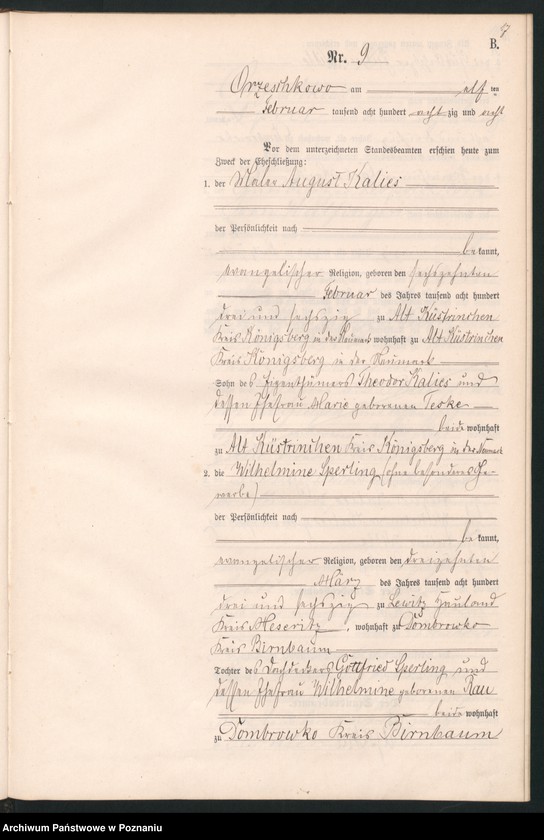 7
B.
Nr. 9
Orzeshkowo am elf ten
Februar tausend acht hundert acht zig und acht
Vor dem unterzeichneten Standesbeamten erschien heute zum
Zweck der Eheschließung:
1. der Maler August Kalies
der Persönlichkeit nach
be kannt,
evangelischer Religion, geboren den sechszehnten
Februar des Jahres tausend acht hundert
drei und sechszig zu Alt Küstrinchen
Kreis Königsberg in der Neumark wohnhaft zu Alt Küstrinchen
Kreis Königsberg in der Neumark
Sohn des Eigenthümers Theodor Kalies und
dessen Ehefrau Marie geborenen Teske
beide wohnhaft
zu Alt Küstrinchen Kreis Königsberg in der Neumark
2. die Wilhelmine Sperling (ohne besonderes Ge-
werbe)
der Persönlichkeit nach
be kannt,
evangelischer Religion, geboren den dreizehnten
März des Jahres tausend acht hundert
drei und sechszig zu Lewitz Hauland
Kreis Meseritz, wohnhaft zu Dombrowko
Kreis Birnbaum
Tochter des Dachdeckers Gottfried Sperling und
dessen Ehefrau Wilhelmine geborenen Rau
beide wohnhaft
zu Dombrowko Kreis Birnbaum
Archiwum Państwowe w Poznaniu